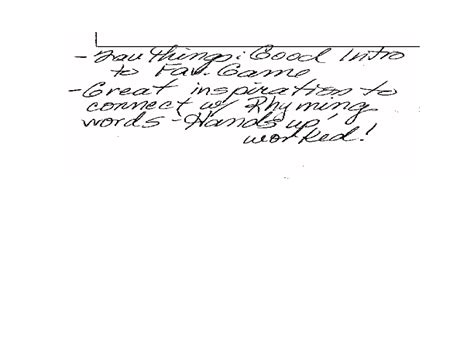 - Fav Things: Good Intro
to Fav. Game
- Great inspiration to
connect w/ Rhyming
words - "Hands up"
worked!